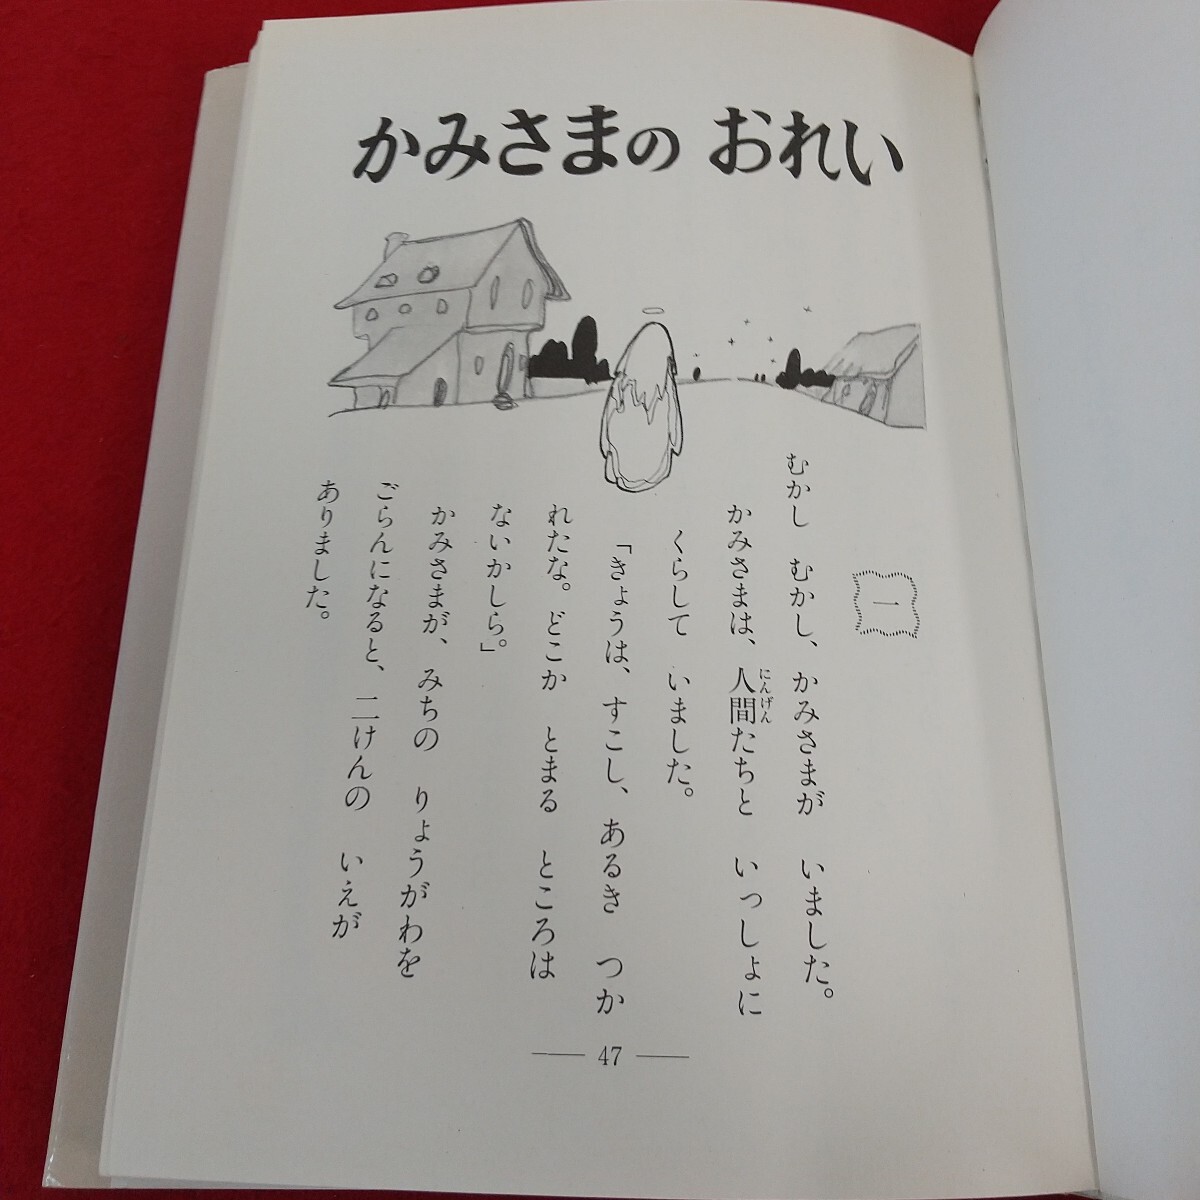 かみさまの おれい
一
むかし むかし、かみさまが いました。
かみさまは、人間たちと いっしょに
にんげん
くらして いました。
「きょうは、すこし、あるき つか
れたな。どこか とまる ところは
ないかしら。」
かみさまが、みちの りょうがわを
ごらんになると、二けんの いえが
ありました。
47